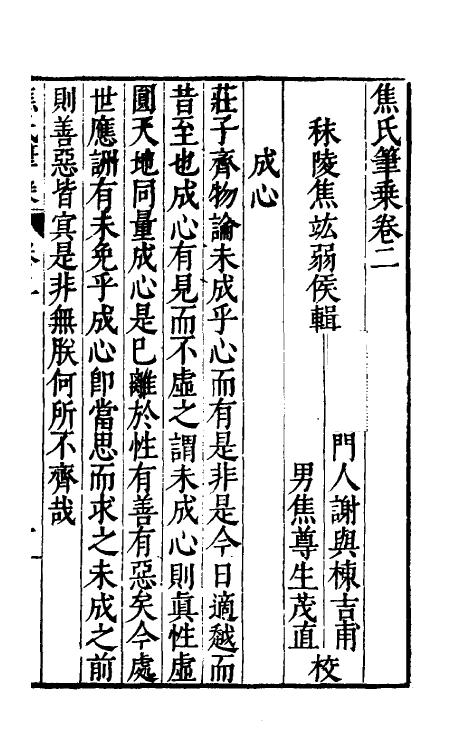 焦氏筆乘卷二
秣陵焦竑弱侯輯
門人謝與棟吉甫
男焦尊生茂直
校
成心
莊子齊物論未成乎心而有是非是今日適越而
昔至也成心有見而不虛之謂未成心則眞性虛
圓天地同量成心是已離於性有善有惡矣今處
世應詶有未免乎成心卽當思而求之未成之前
則善惡皆寘是非無朕何所不齊哉